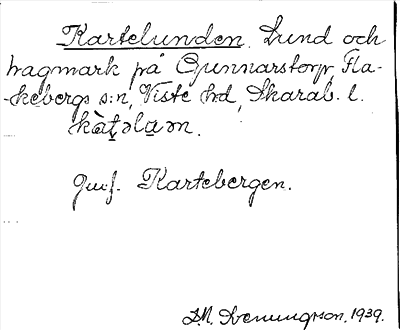 Kartelunden. Lund och
hagmark på Gunnarstorp, Fla-
-kebergs s:n, Viste hd, Skarab. l.
kàt̯əla̲m.
Jmf. Kartebergen.
D.N. Svenungsson. 1939.